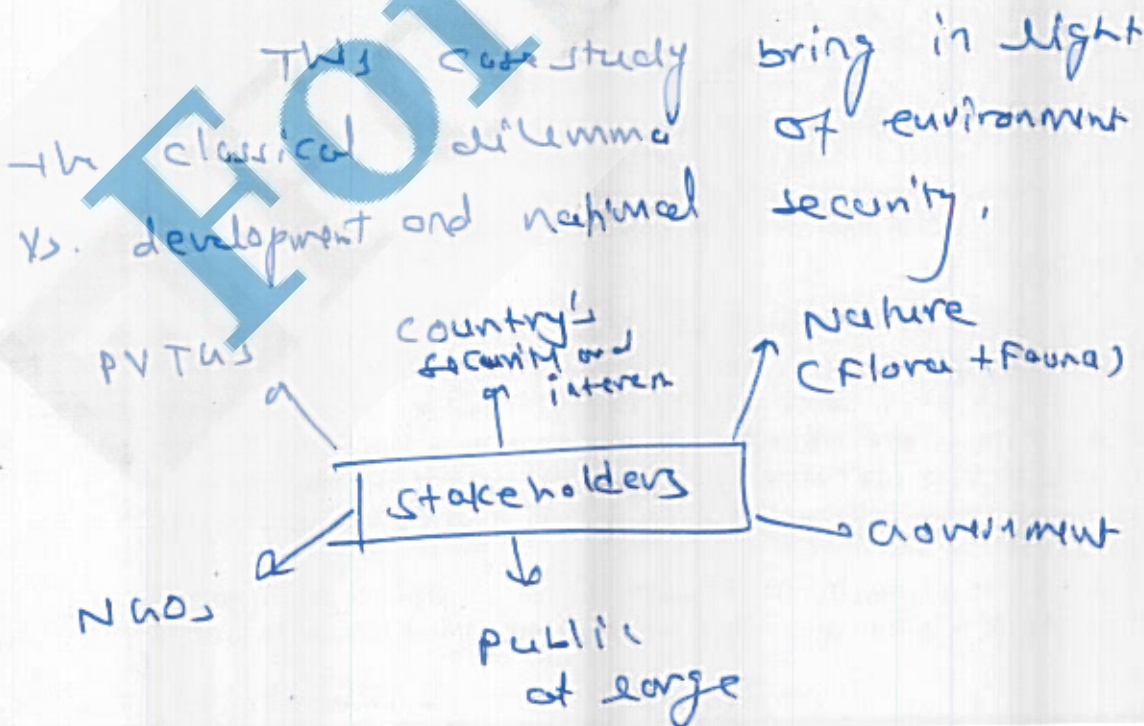 For
This case study bring in light
the classical dilemma of environment
Vs. development and national security.
PVTGs
Country's
security and
interest
Nature
(Flora + Fauna)
Stakeholders
Government
NGOs
public
at large